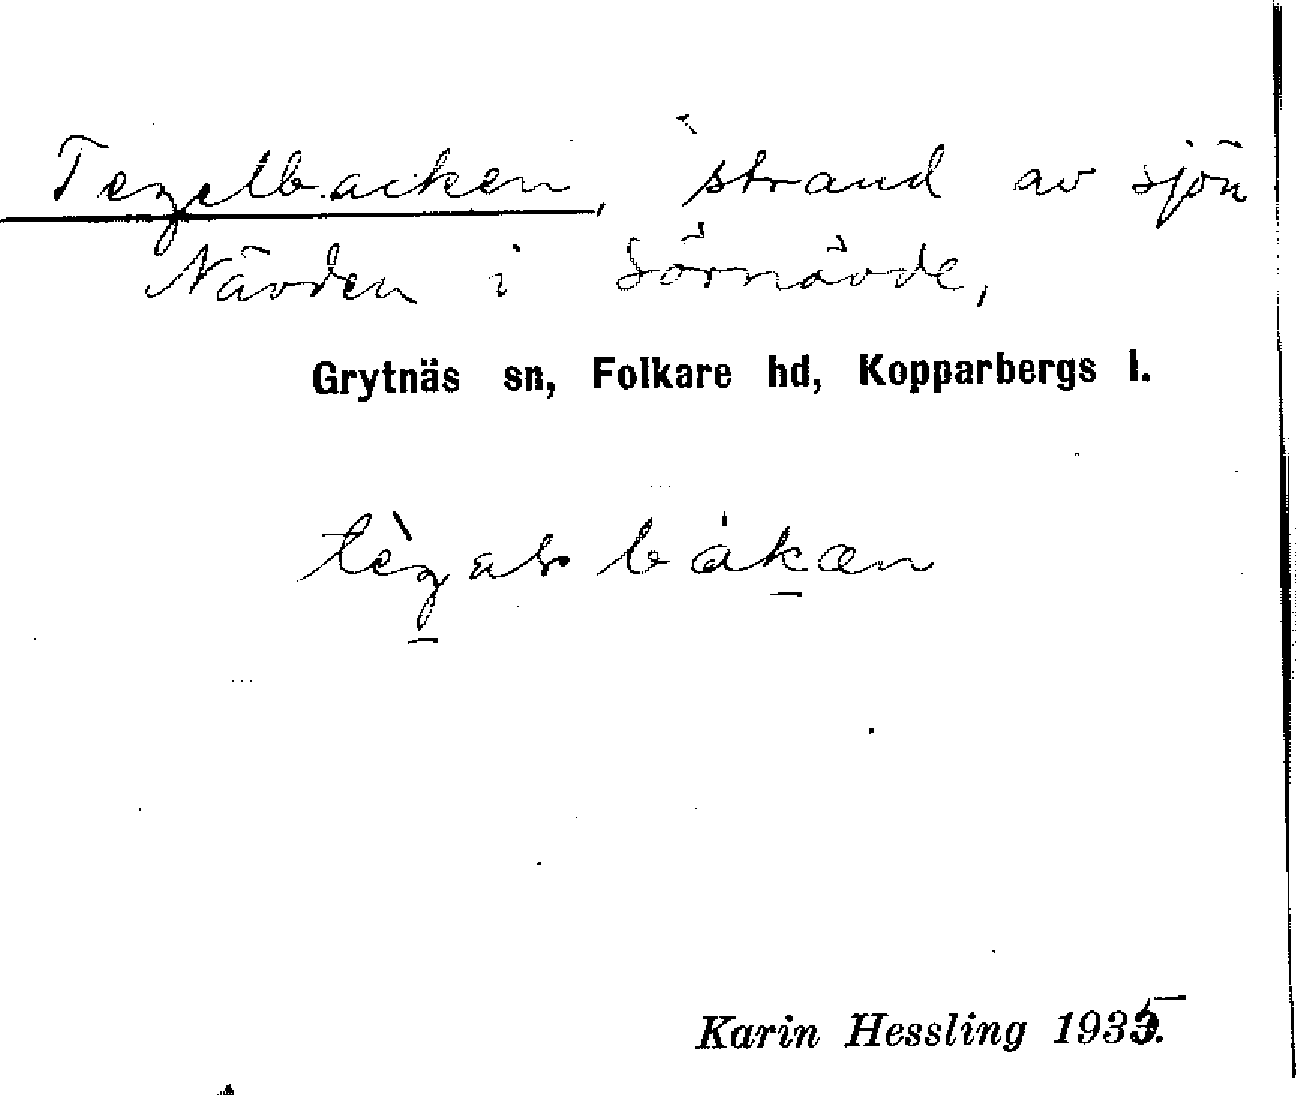 Tegelbacken, strand av sjön
Nävden i Sörnävde,
Grytnäs sn, Folkare hd, Kopparbergs l.
Karin Hessling 1935.